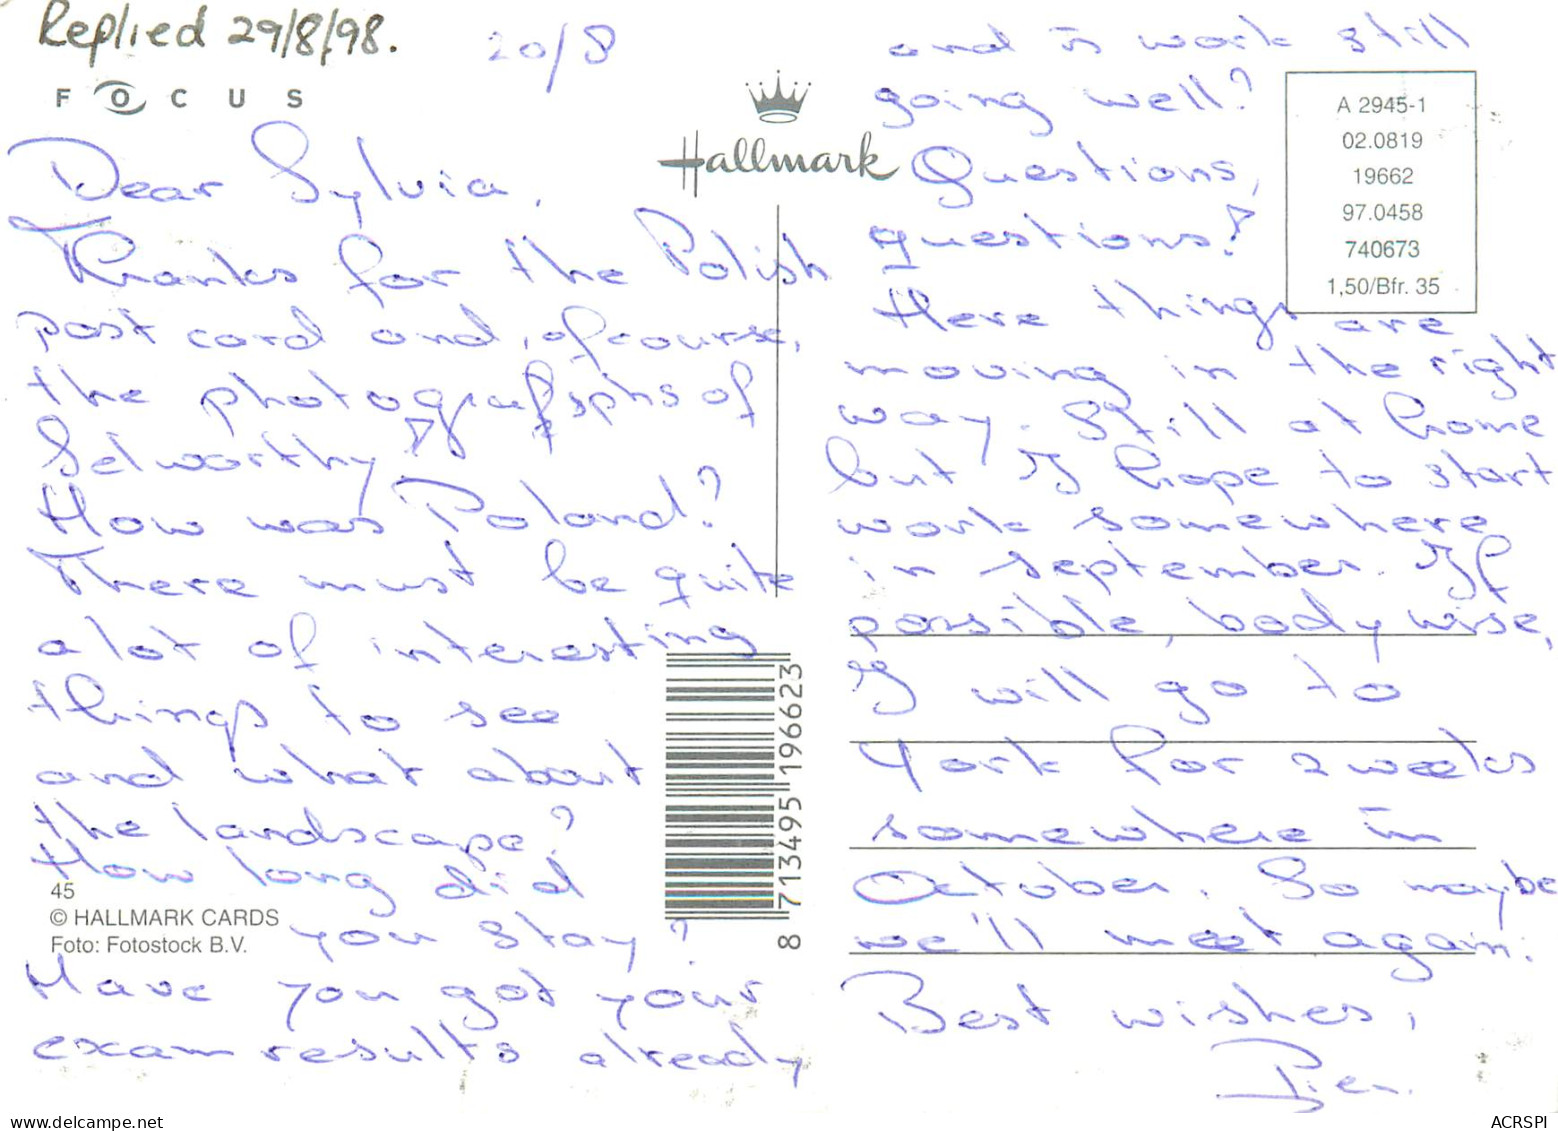 Replied 29/8/98.
20/8
FOCUS
Hallmark
Dear Sylvia,
Thanks for the Polish
post card and, of course,
the photographs of
Selworthy!
How was Poland?
There must be quite
a lot of interesting
things to see
and what about
the landscape?
How long did
you stay?
Have you got your
exam results already
45
© HALLMARK CARDS
Foto: Fotostock B.V.
8 713495 196623
and is work still
going well?
Questions,
questions!
Here things are
moving in the right
way. Still at home
but I hope to start
work somewhere
in september. If
possible, body wise,
I will go to
York for 2 weeks
somewhere in
October. So maybe
we'll meet again.
Best wishes,
A 2945-1
02.0819
19662
97.0458
740673
1,50/Bfr. 35
www.delcampe.net
ACRSPI